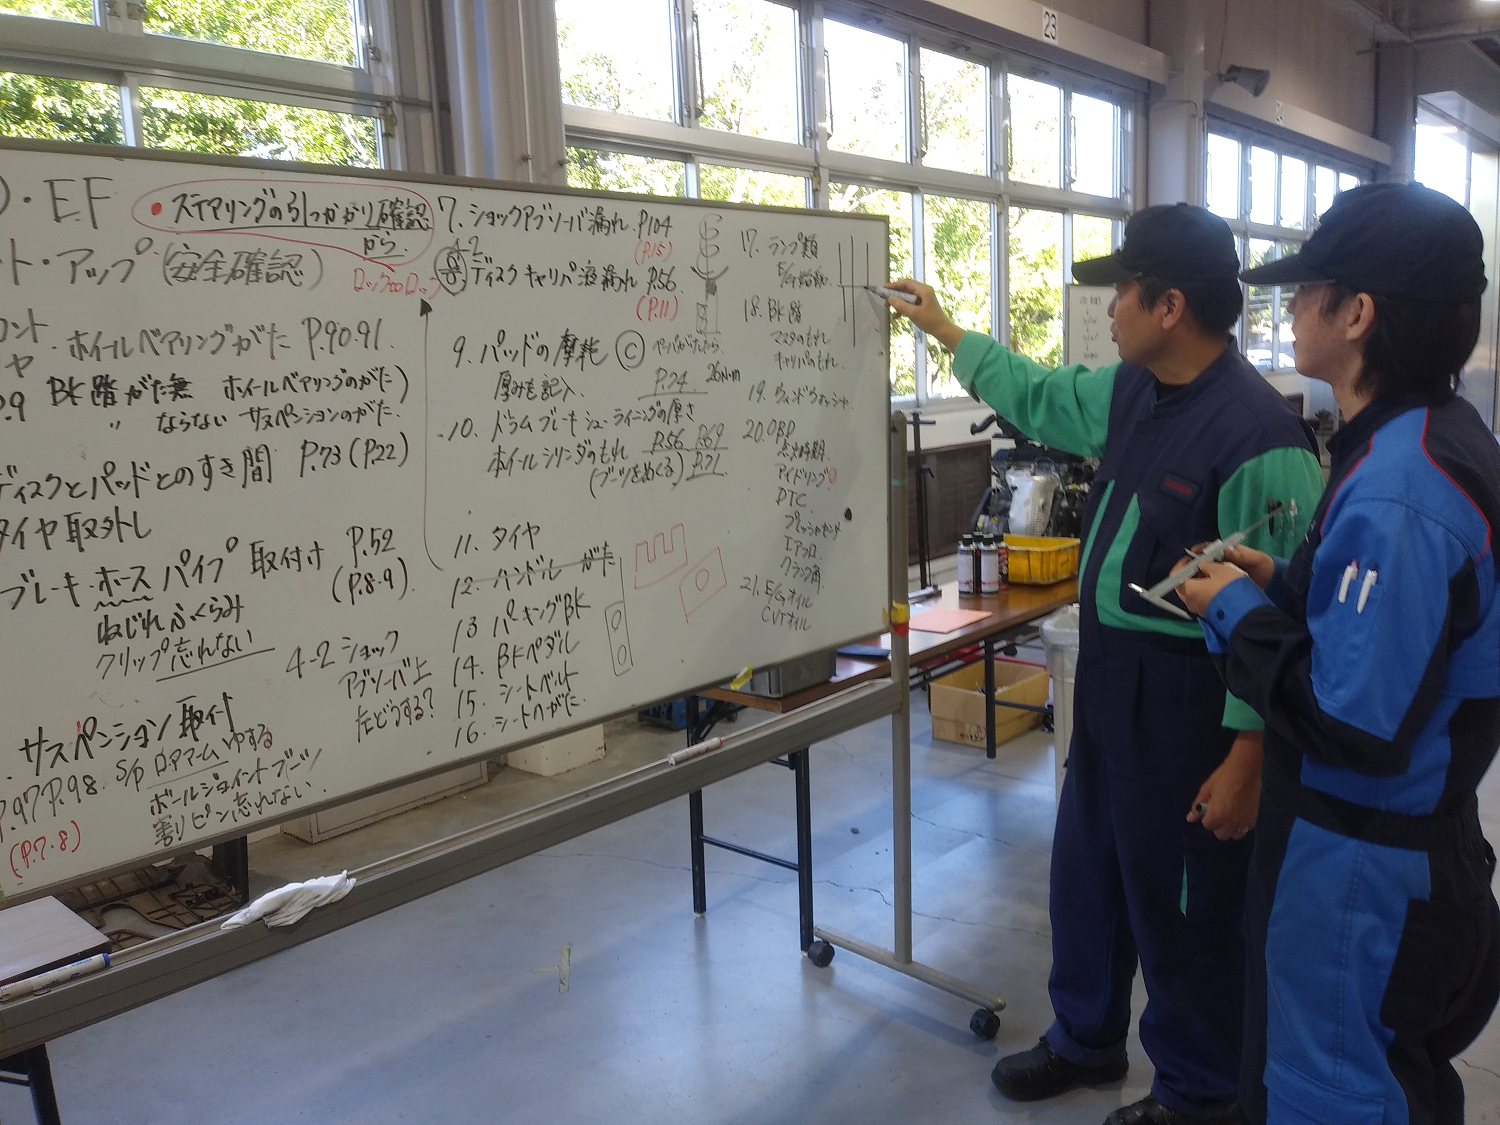 ・EF
・ステアリングの引っかかり確認
から
ト・アップ (安全確認)
ロック to ロック
ホイールベアリングがた P.90.91.
BK踏がた無 ホイールベアリングのがた)
〃 ならない サスペンションのがた.
ディスクとパッドとのすき間 P.73 (P.22)
タイヤ取外し
ブレーキ・ホース パイプ 取付け P.52
(P.8.9)
ねじれ ふくらみ
クリップ忘れない
4-2 ショック
アブソーバ上
左どうする?
サスペンション取付
P.97 P.98. S/P ロアアーム ゆする
(P.7.8)
ボールジョイントブーツ
割りピン忘れない.
7. ショックアブソーバ漏れ. P.104
(P.15)
4-2
8 ディスクキャリパ液漏れ P.56.
(P.11)
9. パッドの摩耗 C
厚みを記入 P.74. 26N・m
10. ドラムブレーキシューライニングの厚さ
ホイールシリンダのもれ P.56 P.69
(ブーツをめくる) P.71
11. タイヤ
12. ハンドル がた
13 パーキングBK
14. BKペダル
15. シートベルト
16. シートへがた.
17. ランプ類
E/G始動.
18. BK踏
マスタのもれ
キャリパのもれ.
19. ウィンドウォッシャ.
20. OBD
点火時期.
アイドリング
DTC
プレッシャセンサ
エアフロ.
クランク角
21. E/Gオイル
CVTオイル
23